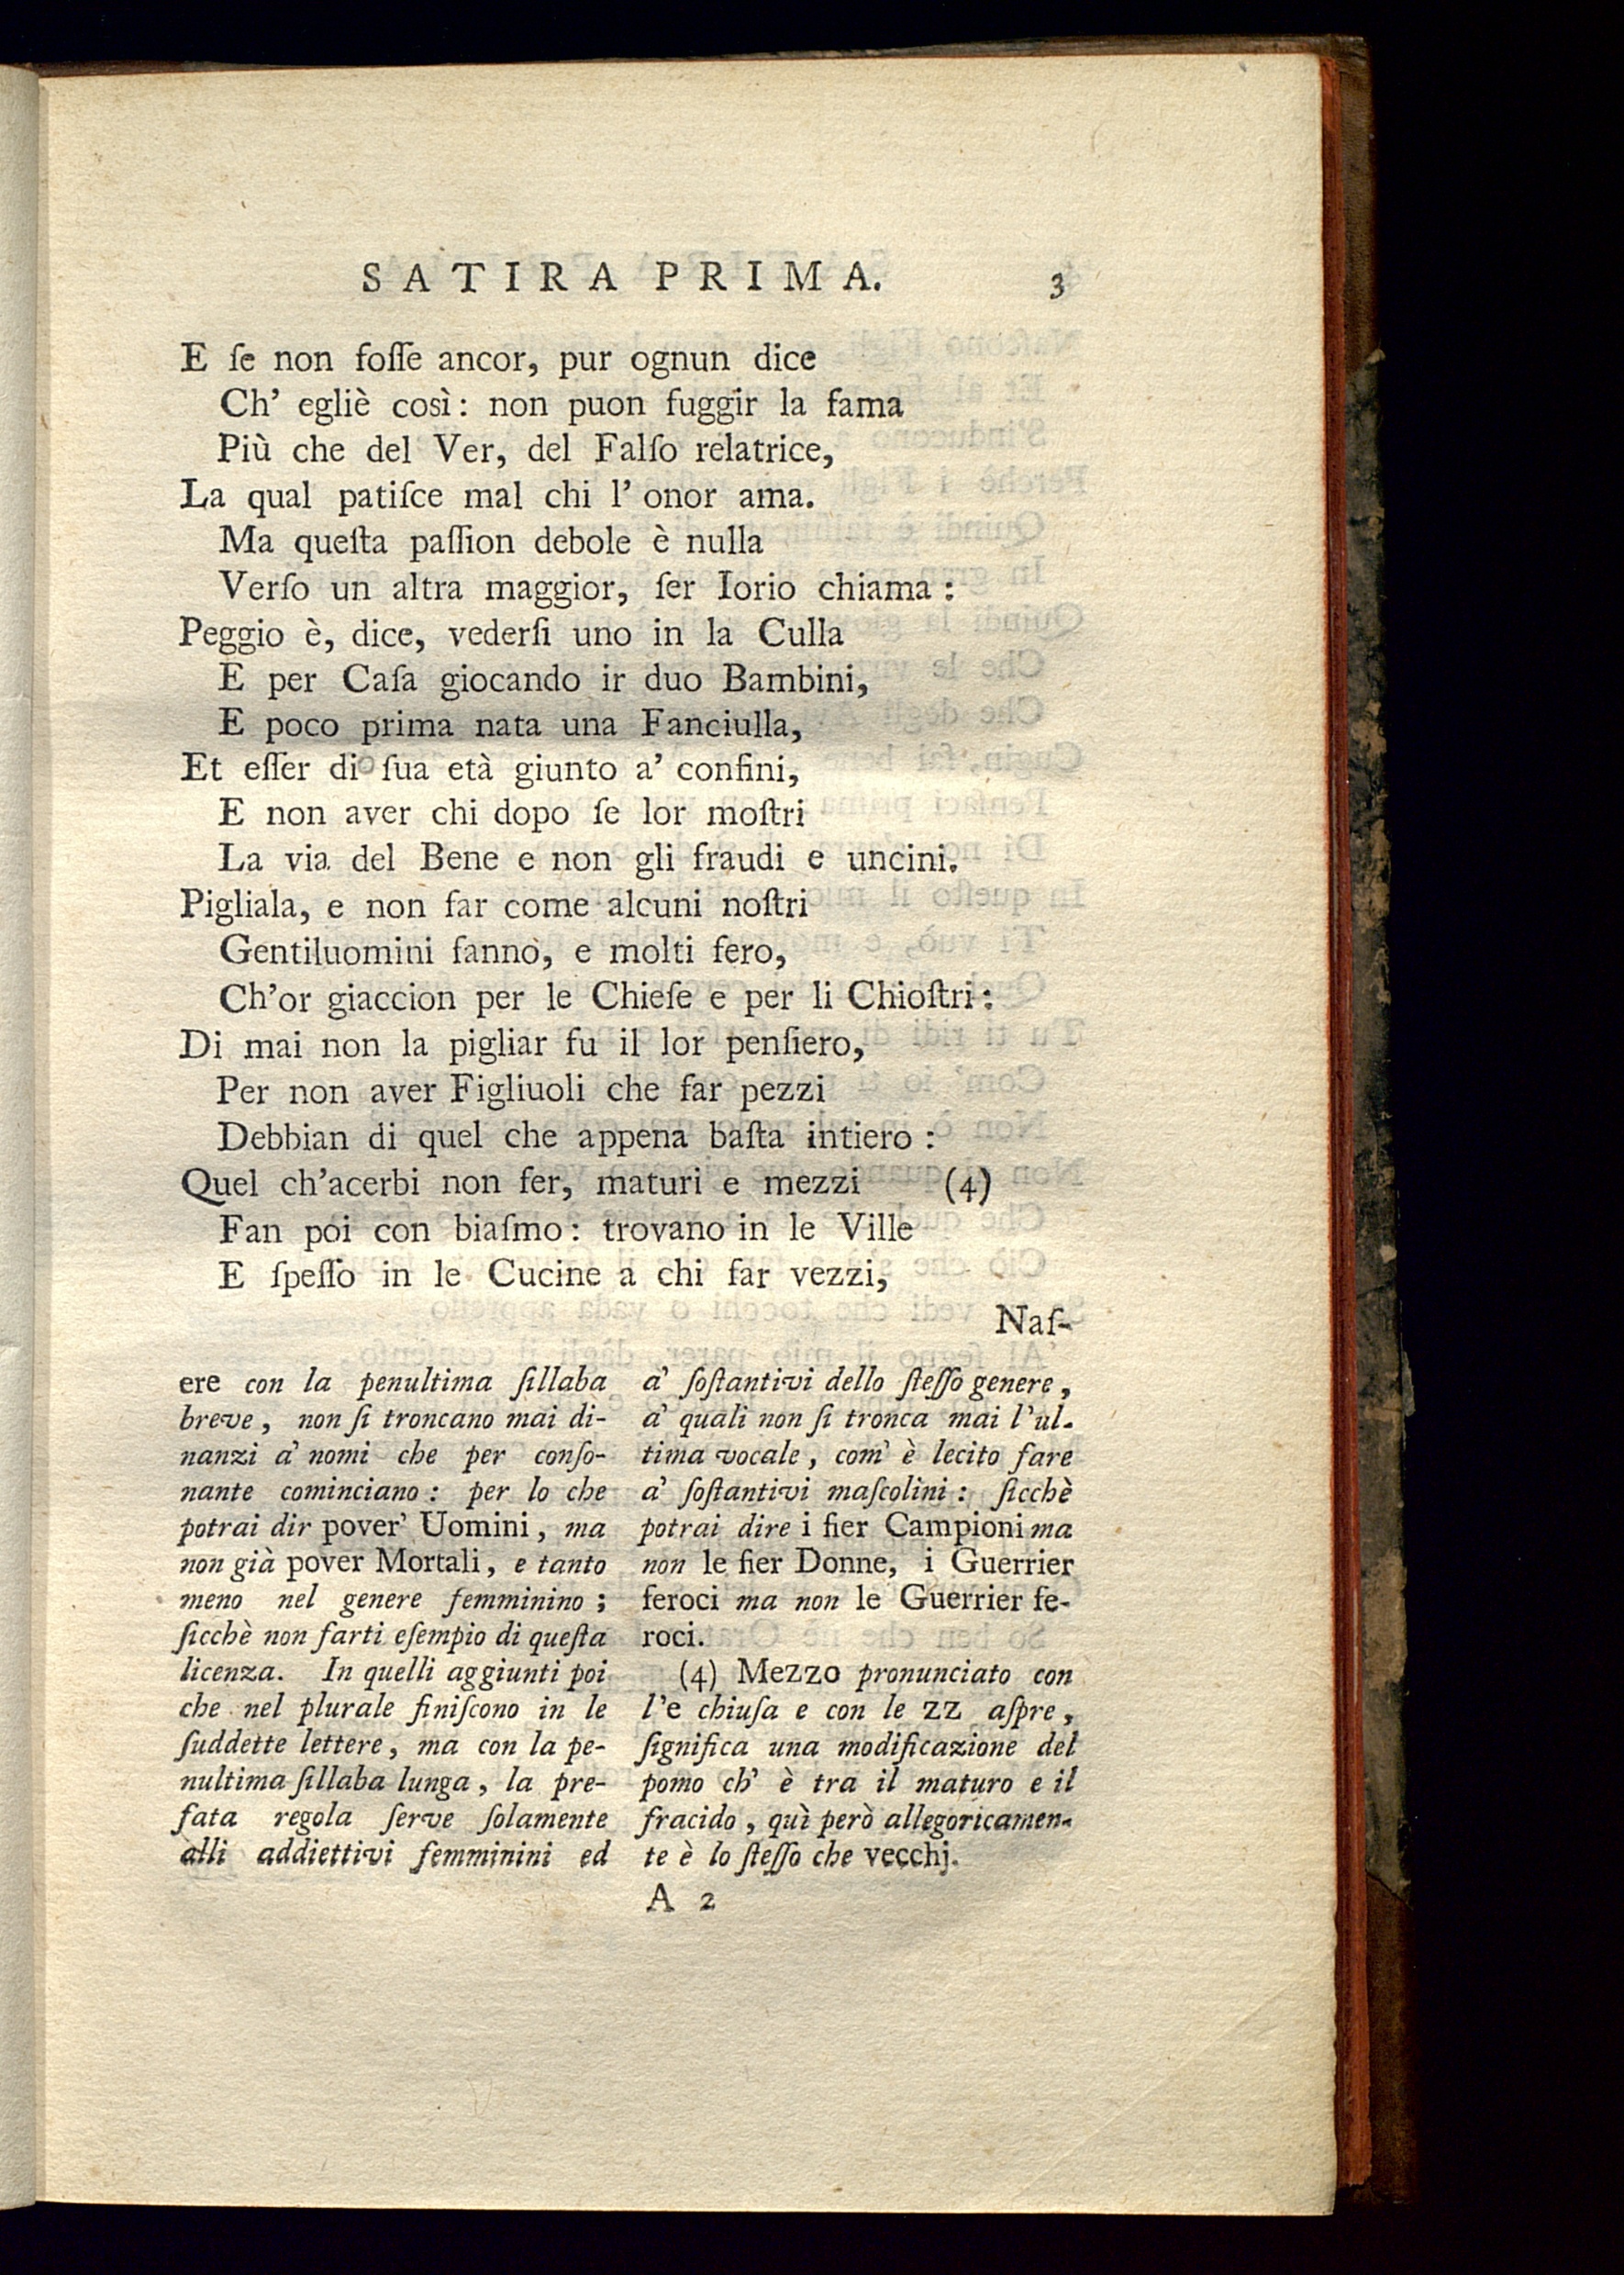 SATIRA PRIMA. 3
E ſe non foſſe ancor, pur ognun dice
Ch' egliè così: non puon fuggir la fama
Più che del Ver, del Falſo relatrice,
La qual patiſce mal chi l' onor ama.
Ma queſta paſſion debole è nulla
Verſo un altra maggior, ſer Iorio chiama:
Peggio è, dice, vederſi uno in la Culla
E per Caſa giocando ir duo Bambini,
E poco prima nata una Fanciulla,
Et eſſer di ſua età giunto a' confini,
E non aver chi dopo ſe lor moſtri
La via del Bene e non gli fraudi e uncini.
Pigliala, e non far come alcuni noſtri
Gentiluomini fanno, e molti fero,
Ch'or giaccion per le Chieſe e per li Chioſtri:
Di mai non la pigliar fu il lor penſiero,
Per non aver Figliuoli che far pezzi
Debbian di quel che appena baſta intiero:
Quel ch'acerbi non fer, maturi e mezzi (4)
Fan poi con biaſmo: trovano in le Ville
E ſpeſſo in le Cucine a chi far vezzi,
Naſ-
ere con la penultima ſillaba
breve, non ſi troncano mai di-
nanzi a' nomi che per conſo-
nante cominciano: per lo che
potrai dir pover' Uomini, ma
non già pover Mortali, e tanto
meno nel genere femminino;
ſicchè non farti eſempio di queſta
licenza. In quelli aggiunti poi
che nel plurale finiſcono in le
ſuddette lettere, ma con la pe-
nultima ſillaba lunga, la pre-
fata regola ſerve ſolamente
alli addiettivi femminini ed
a' ſoſtantivi dello ſteſſo genere,
a' quali non ſi tronca mai l'ul-
tima vocale, com' è lecito fare
a' ſoſtantivi maſcolini: ſicchè
potrai dire i fier Campioni ma
non le fier Donne, i Guerrier
feroci ma non le Guerrier fe-
roci.
(4) Mezzo pronunciato con
l'e chiuſa e con le zz aſpre,
ſignifica una modificazione del
pomo ch' è tra il maturo e il
fracido, quì però allegoricamen-
te è lo ſteſſo che vecchj.
A 2